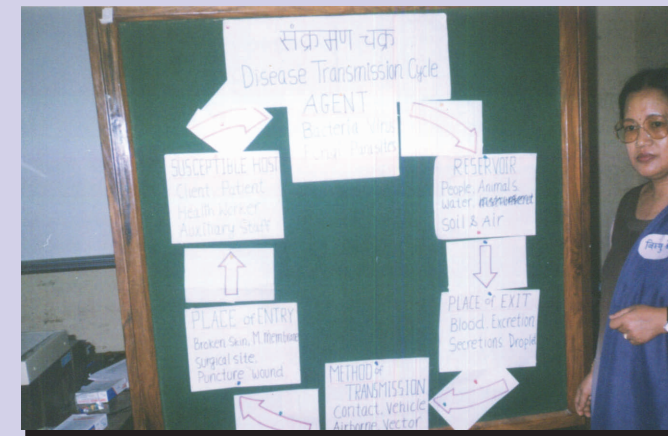 संक्रमण चक्र
Disease Transmission Cycle
AGENT
Bacteria Virus
Fungi Parasites
RESERVOIR
People, Animals
Water, instrument
Soil & Air
PLACE of EXIT
Blood, Excretion
Secretions, Droplet
METHOD of
TRANSMISSION
Contact, Vehicle
Airborne Vector
PLACE of ENTRY
Broken Skin, M. Membrane
Surgical site,
Puncture wound
SUSCEPTIBLE HOST
Client, Patient
Health Worker
Auxiliary Staff